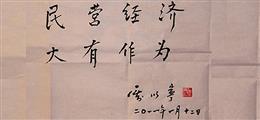 民营经济
大有作为
二〇一一年一月十二日